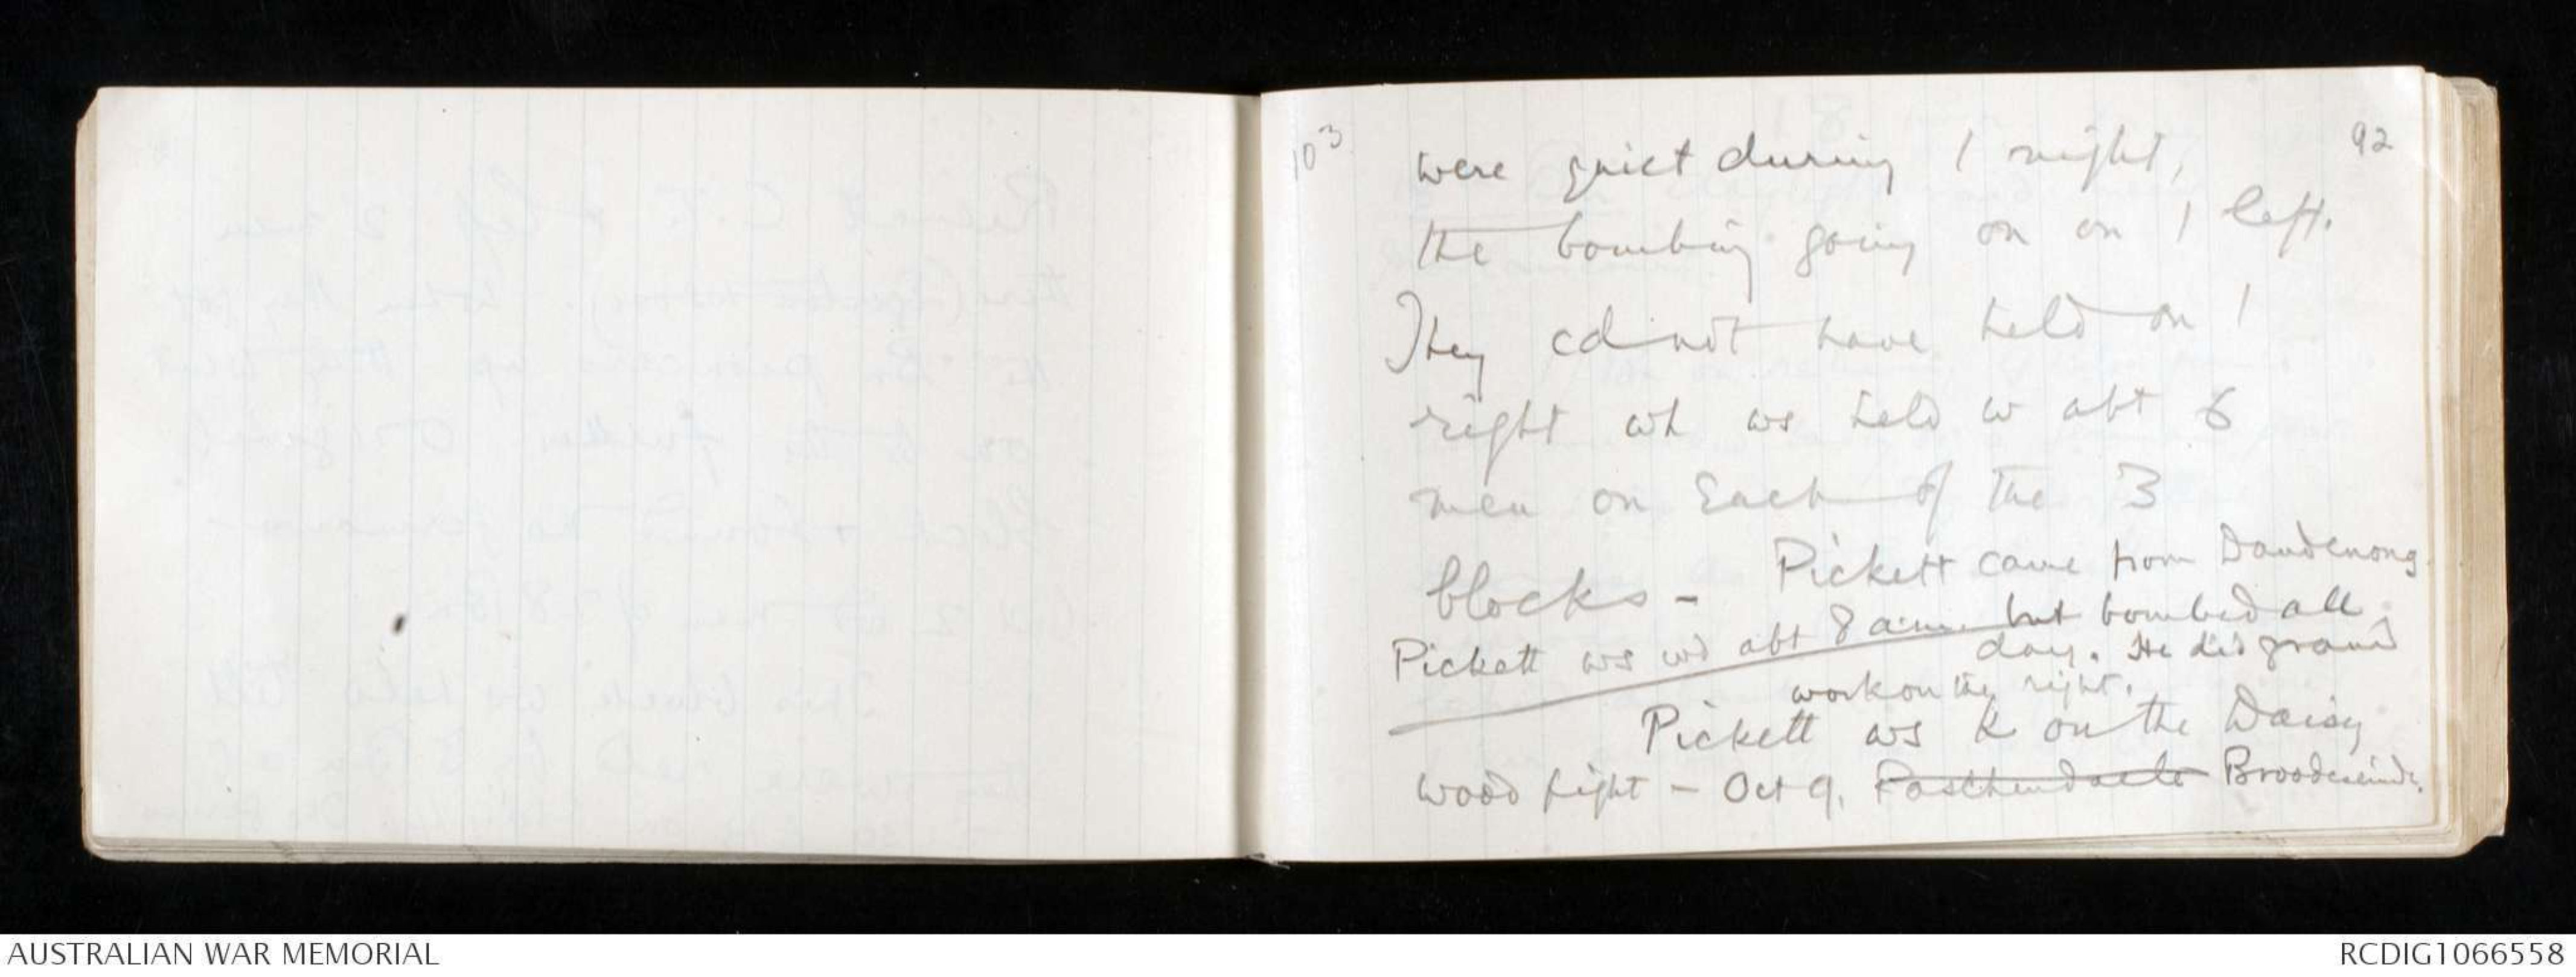 103
92
were quiet during / night,
the bombing going on on / left.
They cd not have held on /
right wh ws held w abt 6
men on each of the 3
blocks - Pickett came from Dandenong
Pickett ws wd abt 8 a.m. but bombed all
day. He did grand
work on the right.
Pickett ws k on the Daisy
wood fight - Oct 9. Passchendaele Broodseinde.
AUSTRALIAN WAR MEMORIAL
RCDIG1066558